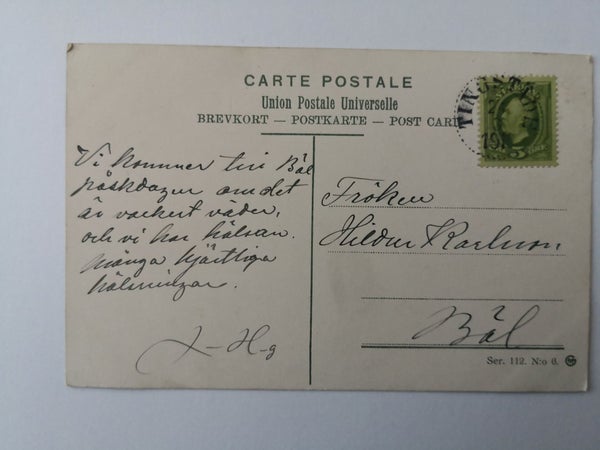 CARTE POSTALE
Union Postale Universelle
BREVKORT — POSTKARTE — POST CARD
TINGSTÄDE
Vi kommer till Bäl
påskdagen om det
är vackert väder,
och vi har hälsan.
Många hjärtliga
hälsningar.
J-H-g
Fröken
Hildur Karlsson
Bäl
5
Ser. 112. N:o 6.